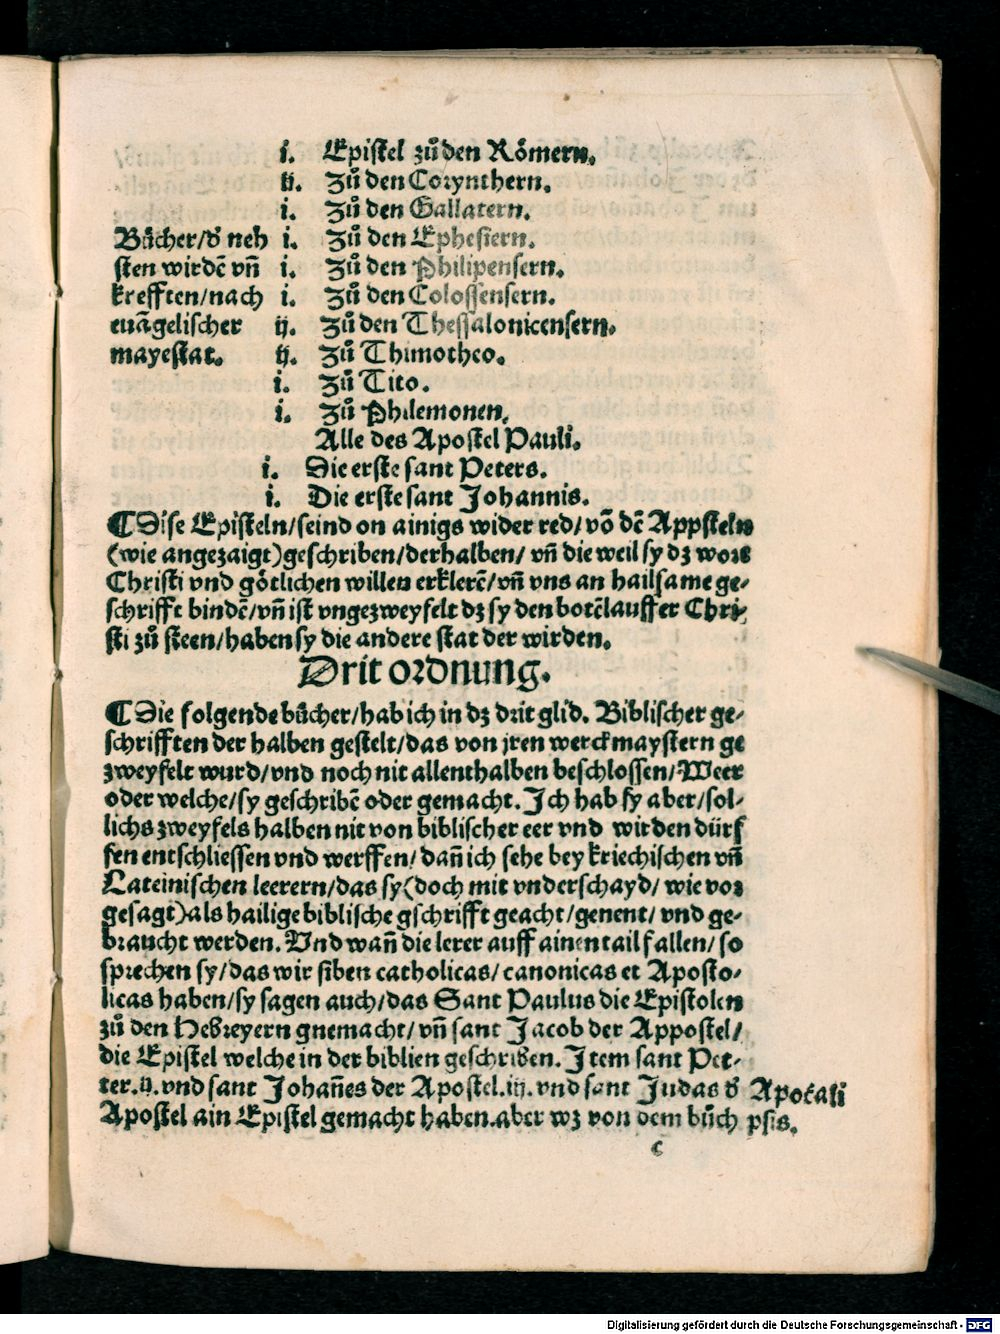 i. Epistel zů den Römern.
ij. Zů den Corynthern.
i. Zů den Gallatern.
Bücher/d' neh i. Zů den Ephesiern.
sten wirdē vñ i. Zů den Philipensern.
krefften/nach i. Zů den Colossensern.
euāgelischer ij. Zů den Thessalonicensern.
mayestat. ij. Zů Thimotheo.
i. Zů Tito.
i. Zů Philemonen.
Alle des Apostel Pauli.
i. Die erste sant Peters.
i. Die erste sant Johannis.
¶ Dise Episteln/seind on ainigs wider red/vō dē Appsteln
(wie angezaigt)geschriben/derhalben/ vñ die weil sy dz wort
Christi vnd götlichen willen erklerē/vñ vns an hailsame ge-
schrifft bindē/vñ ist vngezweyfelt dz sy den botē lauffer Chri-
sti zů steen/haben sy die andere stat der wirden.
Drit ordnung.
¶ Die folgende bücher/hab ich in dz drit glid. Biblischer ge-
schrifften der halben gestelt/das von jren werckmaystern ge
zweyfelt wurd/vnd noch nit allenthalben beschlossen/Weer
oder welche/sy geschribē oder gemacht. Ich hab sy aber/sol-
lichs zweyfels halben nit von biblischer eer vnd wirden dürf
fen entschliessen vnd werffen/ dañ ich sehe bey kriechischen vñ
Lateinischen leerern/das sy(doch mit vnderschayd/ wie vor
gesagt)als hailige biblische gschrifft geacht/genent/ vnd ge-
braucht werden. Vnd wañ die lerer auff ainen tail fallen/ so
sprechen sy/das wir siben catholicas/ canonicas et Aposto-
licas haben/sy sagen auch/das Sant Paulus die Epistolen
zů den Hebreyern gnemacht/ vñ sant Jacob der Appostel/
die Epistel welche in der biblien geschriben. Item sant Pet-
ter.ij.vnd sant Johañes der Apostel.iij.vnd sant Judas d' Apocali
Apostel ain Epistel gemacht haben.aber wz von dem bůch psis.
c
Digitalisierung gefördert durch die Deutsche Forschungsgemeinschaft - DFG